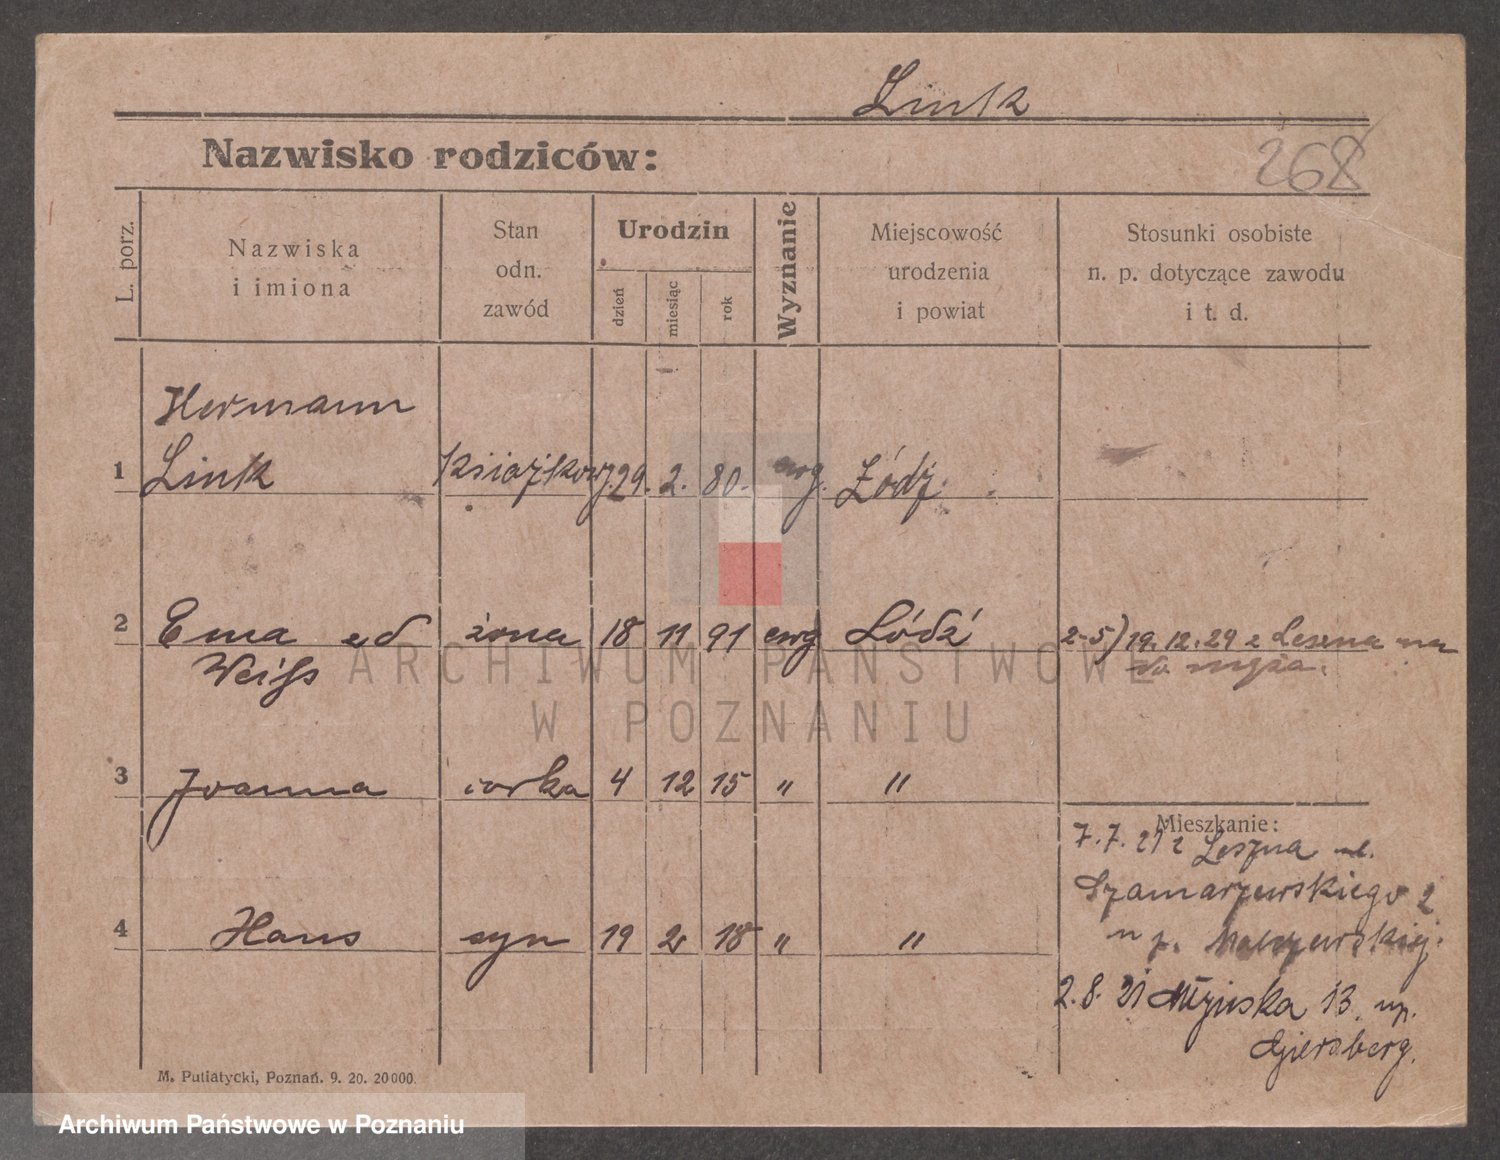 Link
Nazwisko rodziców:
268
L. porz.
Nazwiska
i imiona
Stan
odn.
zawód
Urodzin
dzień
miesiąc
rok
Wyznanie
Miejscowość
urodzenia
i powiat
Stosunki osobiste
n. p. dotyczące zawodu
i t. d.
Hermann
1 Link książkowy. 29. 2. 80. ewg. Łódź
2 Ema żona 18 11 91 ewg Łódź 2-5) 19.12.29 z Leszna na
Weiſs męża.
3 Joanna corka 4 12 15 " "
Mieszkanie:
7.7.21 z Leszna ul.
Szamarzewskiego 2
4 Hans syn 19 2 18 " "
2.8.21 13. np.
Giersberg.
M. Putiatycki, Poznań. 9. 20. 20000.
ARCHIWUM PAŃSTWOWE
W POZNANIU
Archiwum Państwowe w Poznaniu